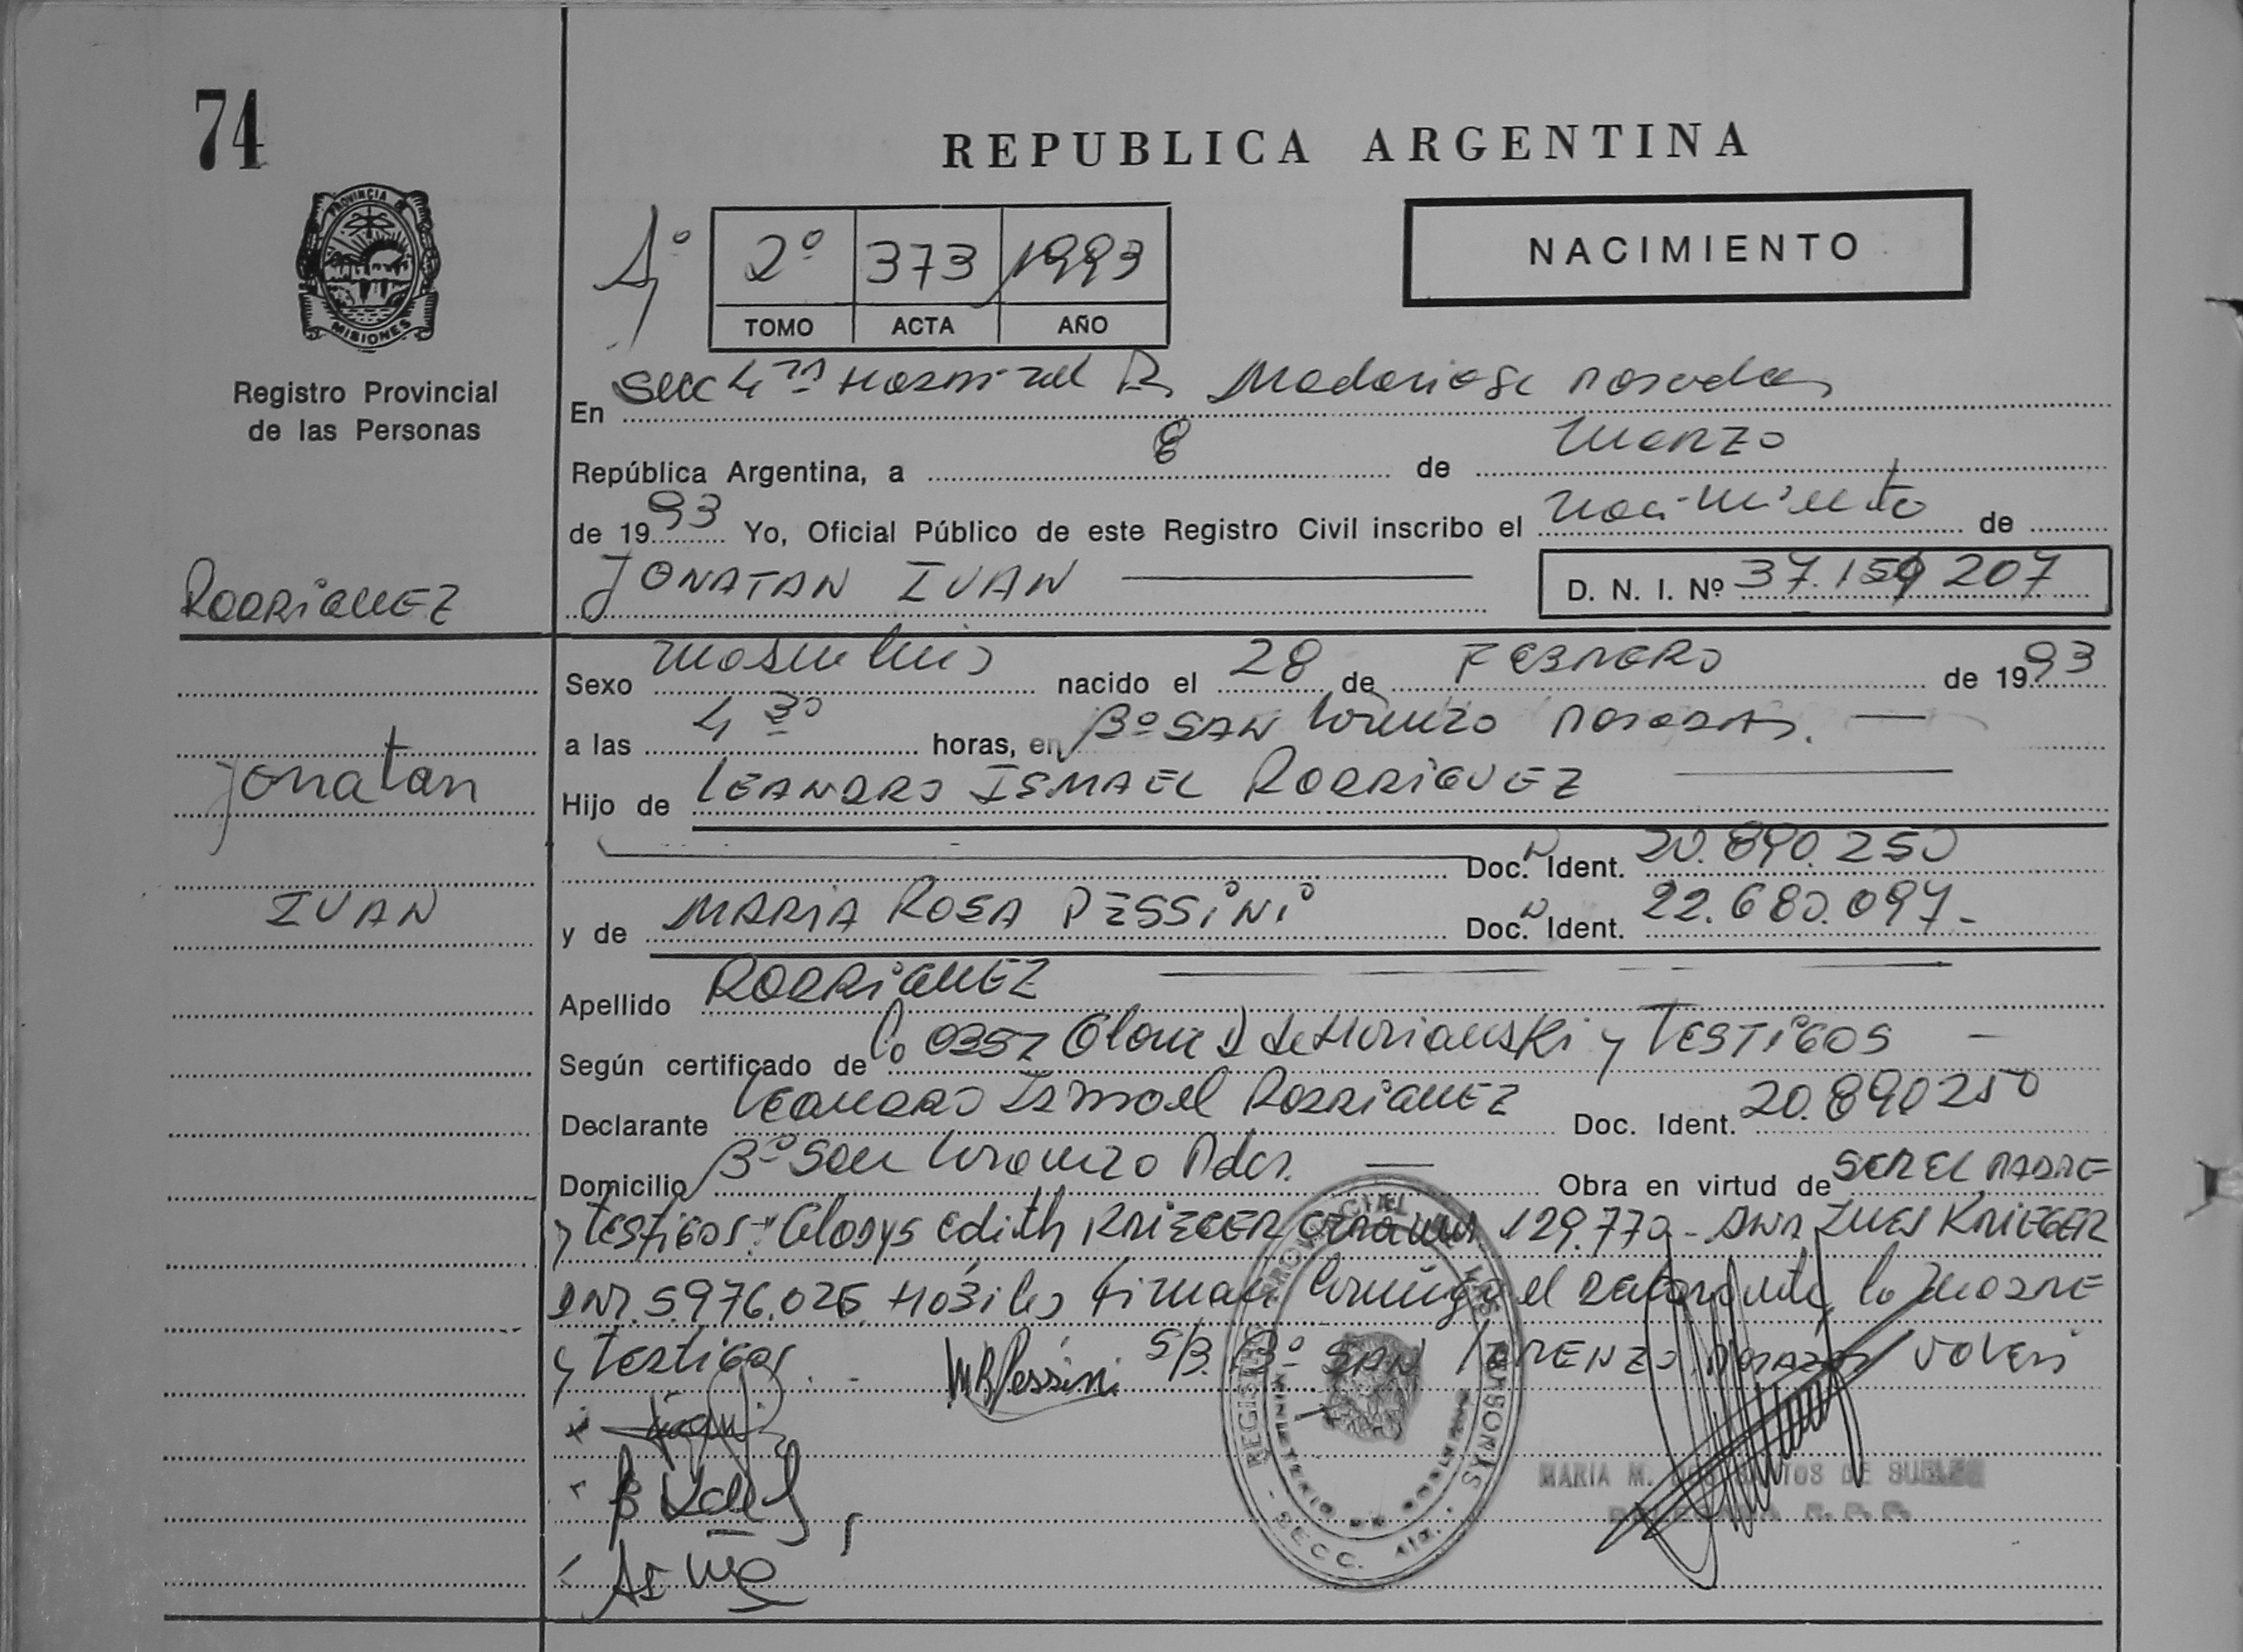 74
REPUBLICA ARGENTINA
PROVINCIA DE
MISIONES
Registro Provincial
de las Personas
4º
2º 373 1993
TOMO ACTA AÑO
NACIMIENTO
En Secc 4ta Hospital R. Madariaga Posadas
República Argentina, a 8 de Marzo
de 1993 Yo, Oficial Público de este Registro Civil inscribo el nacimiento de
JONATAN IVAN
D. N. I. Nº 37.159 207
RODRIGUEZ
Jonatan
IVAN
Sexo masculino nacido el 28 de FEBRERO de 1993
a las 4 30 horas, en Bº SAN Lorenzo POSADAS.
Hijo de LEANDRO ISMAEL RODRIGUEZ
Doc. Ident. 20.890.250
y de MARIA ROSA PESSINI Doc. Ident. 22.680.097.-
Apellido RODRIGUEZ
Según certificado de Co 0357 y TESTIGOS -
Declarante Leandro Ismael RODRIGUEZ Doc. Ident. 20.890250
Domicilio Bº San Lorenzo Pdas. Obra en virtud de SER EL PADRE
y testigos: Gladys Edith KRIEGER 129.770 - INES KRIEGER
DNI. 5976.026 Hábiles firman conmigo el declarante, la MADRE
y testigos. MRPessini S/B. Bº SAN LORENZO POSADAS VALEN
REGISTRO PROVINCIAL DE LAS PERSONAS
- SECC. 4ta. -
MARIA M. DOS SANTOS DE